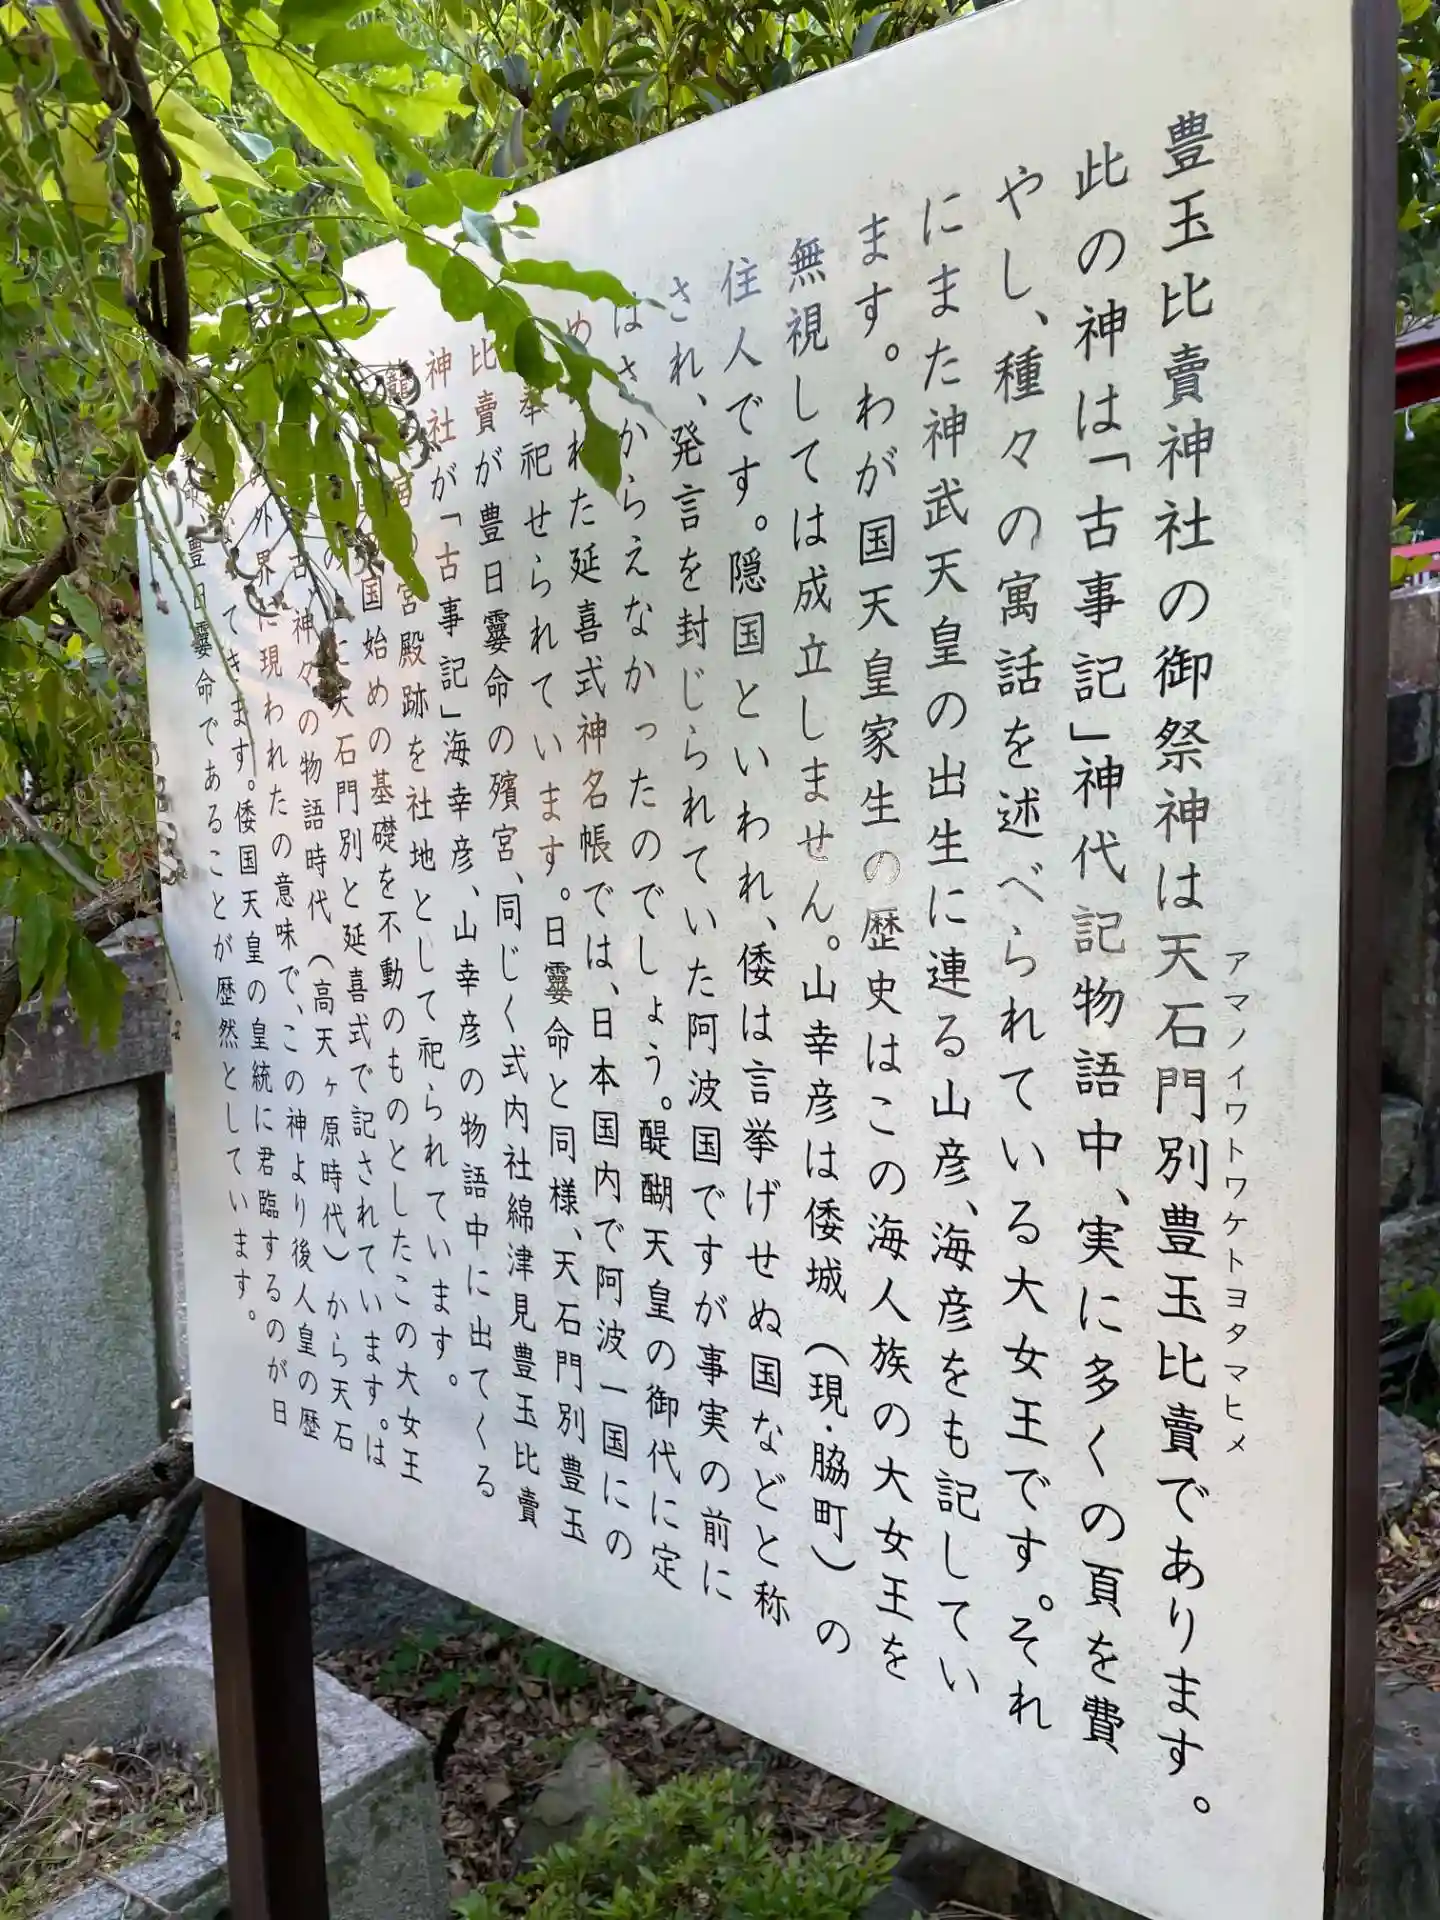 豊玉比賣神社の御祭神は天石門別豊玉比賣であります。
アマノイワトワケトヨタマヒメ
此の神は「古事記」神代記物語中、実に多くの頁を費
やし、種々の寓話を述べられている大女王です。それ
にまた神武天皇の出生に連る山彦、海彦をも記してい
ます。わが国天皇家生の歴史はこの海人族の大女王を
無視しては成立しません。山幸彦は倭城（現・脇町）の
住人です。隠国といわれ、倭は言挙げせぬ国などと称
され、発言を封じられていた阿波国ですが事実の前に
はさからえなかったのでしょう。醍醐天皇の御代に定
め られた延喜式神名帳では、日本国内で阿波一国にの
奉祀せられています。日靈命と同様、天石門別豊玉
比賣が豊日靈命の殯宮、同じく式内社綿津見豊玉比賣
神社が「古事記」海幸彦、山幸彦の物語中に出てくる
籠 宮の宮殿跡を社地として祀られています。
国始めの基礎を不動のものとしたこの大女王
の に天石門別と延喜式で記されています。は
古、神々の物語時代（高天ヶ原時代）から天石
外界に現われたの意味で、この神より後人皇の歴
てきます。倭国天皇の皇統に君臨するのが日
命 豊日靈命であることが歴然としています。